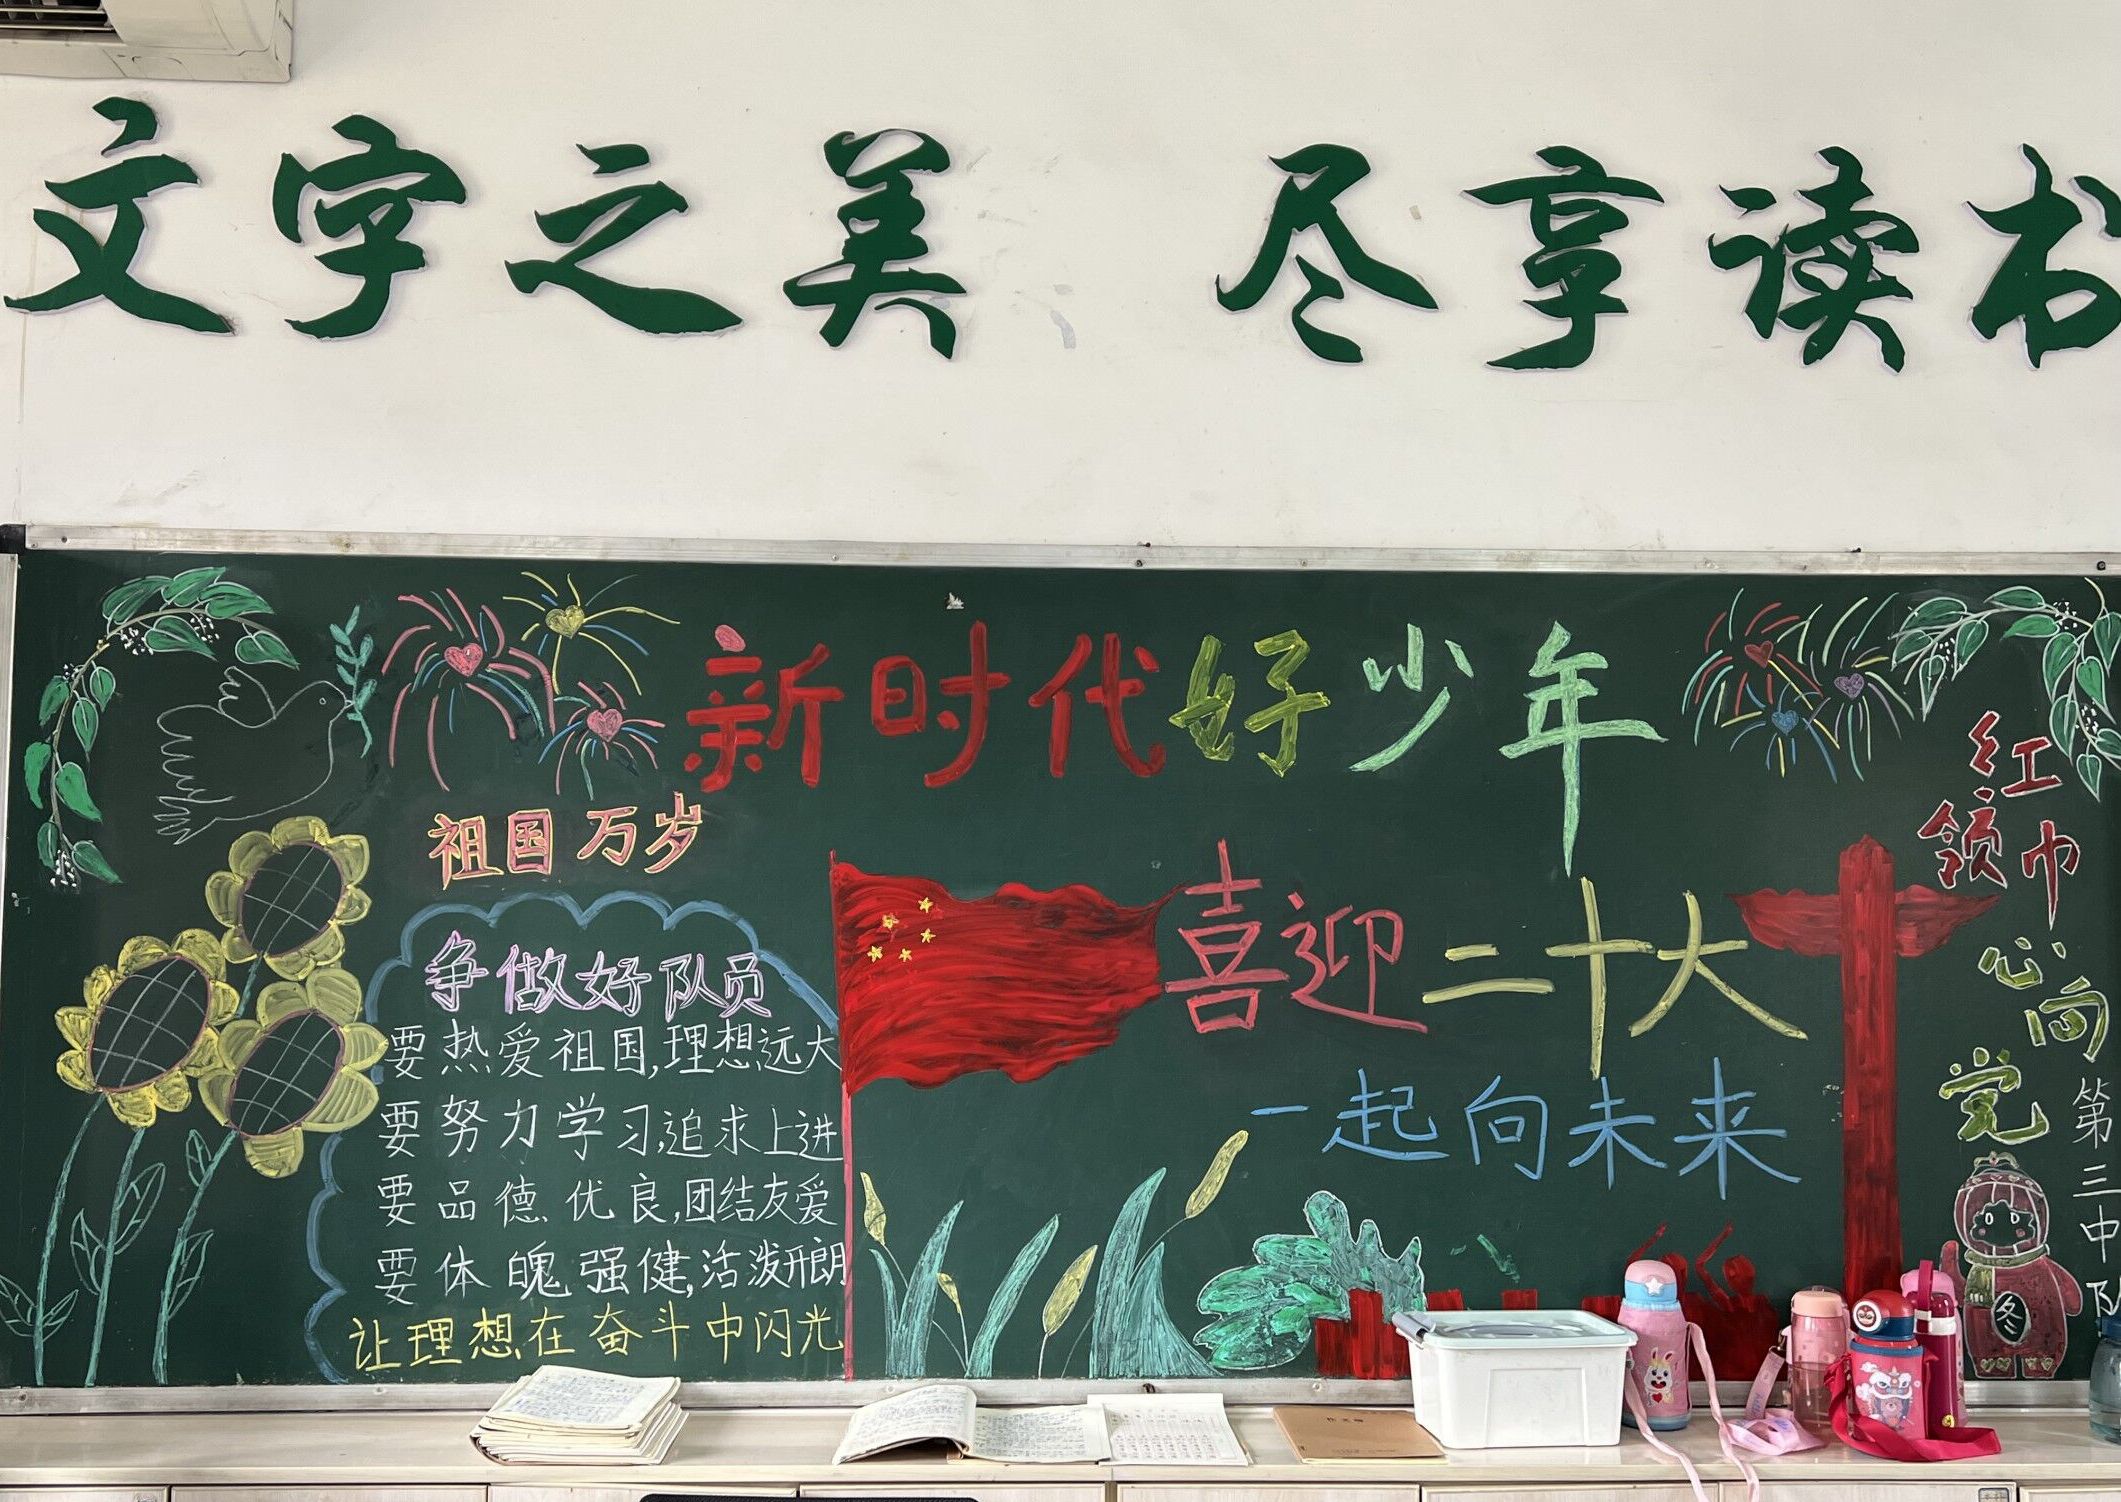 文字之美 尽享读书
新时代好少年
祖国万岁
争做好队员
要热爱祖国,理想远大
要努力学习,追求上进
要品德优良,团结友爱
要体魄强健,活泼开朗
让理想在奋斗中闪光
喜迎二十大
一起向未来
红领巾心向党
第三中队
冬